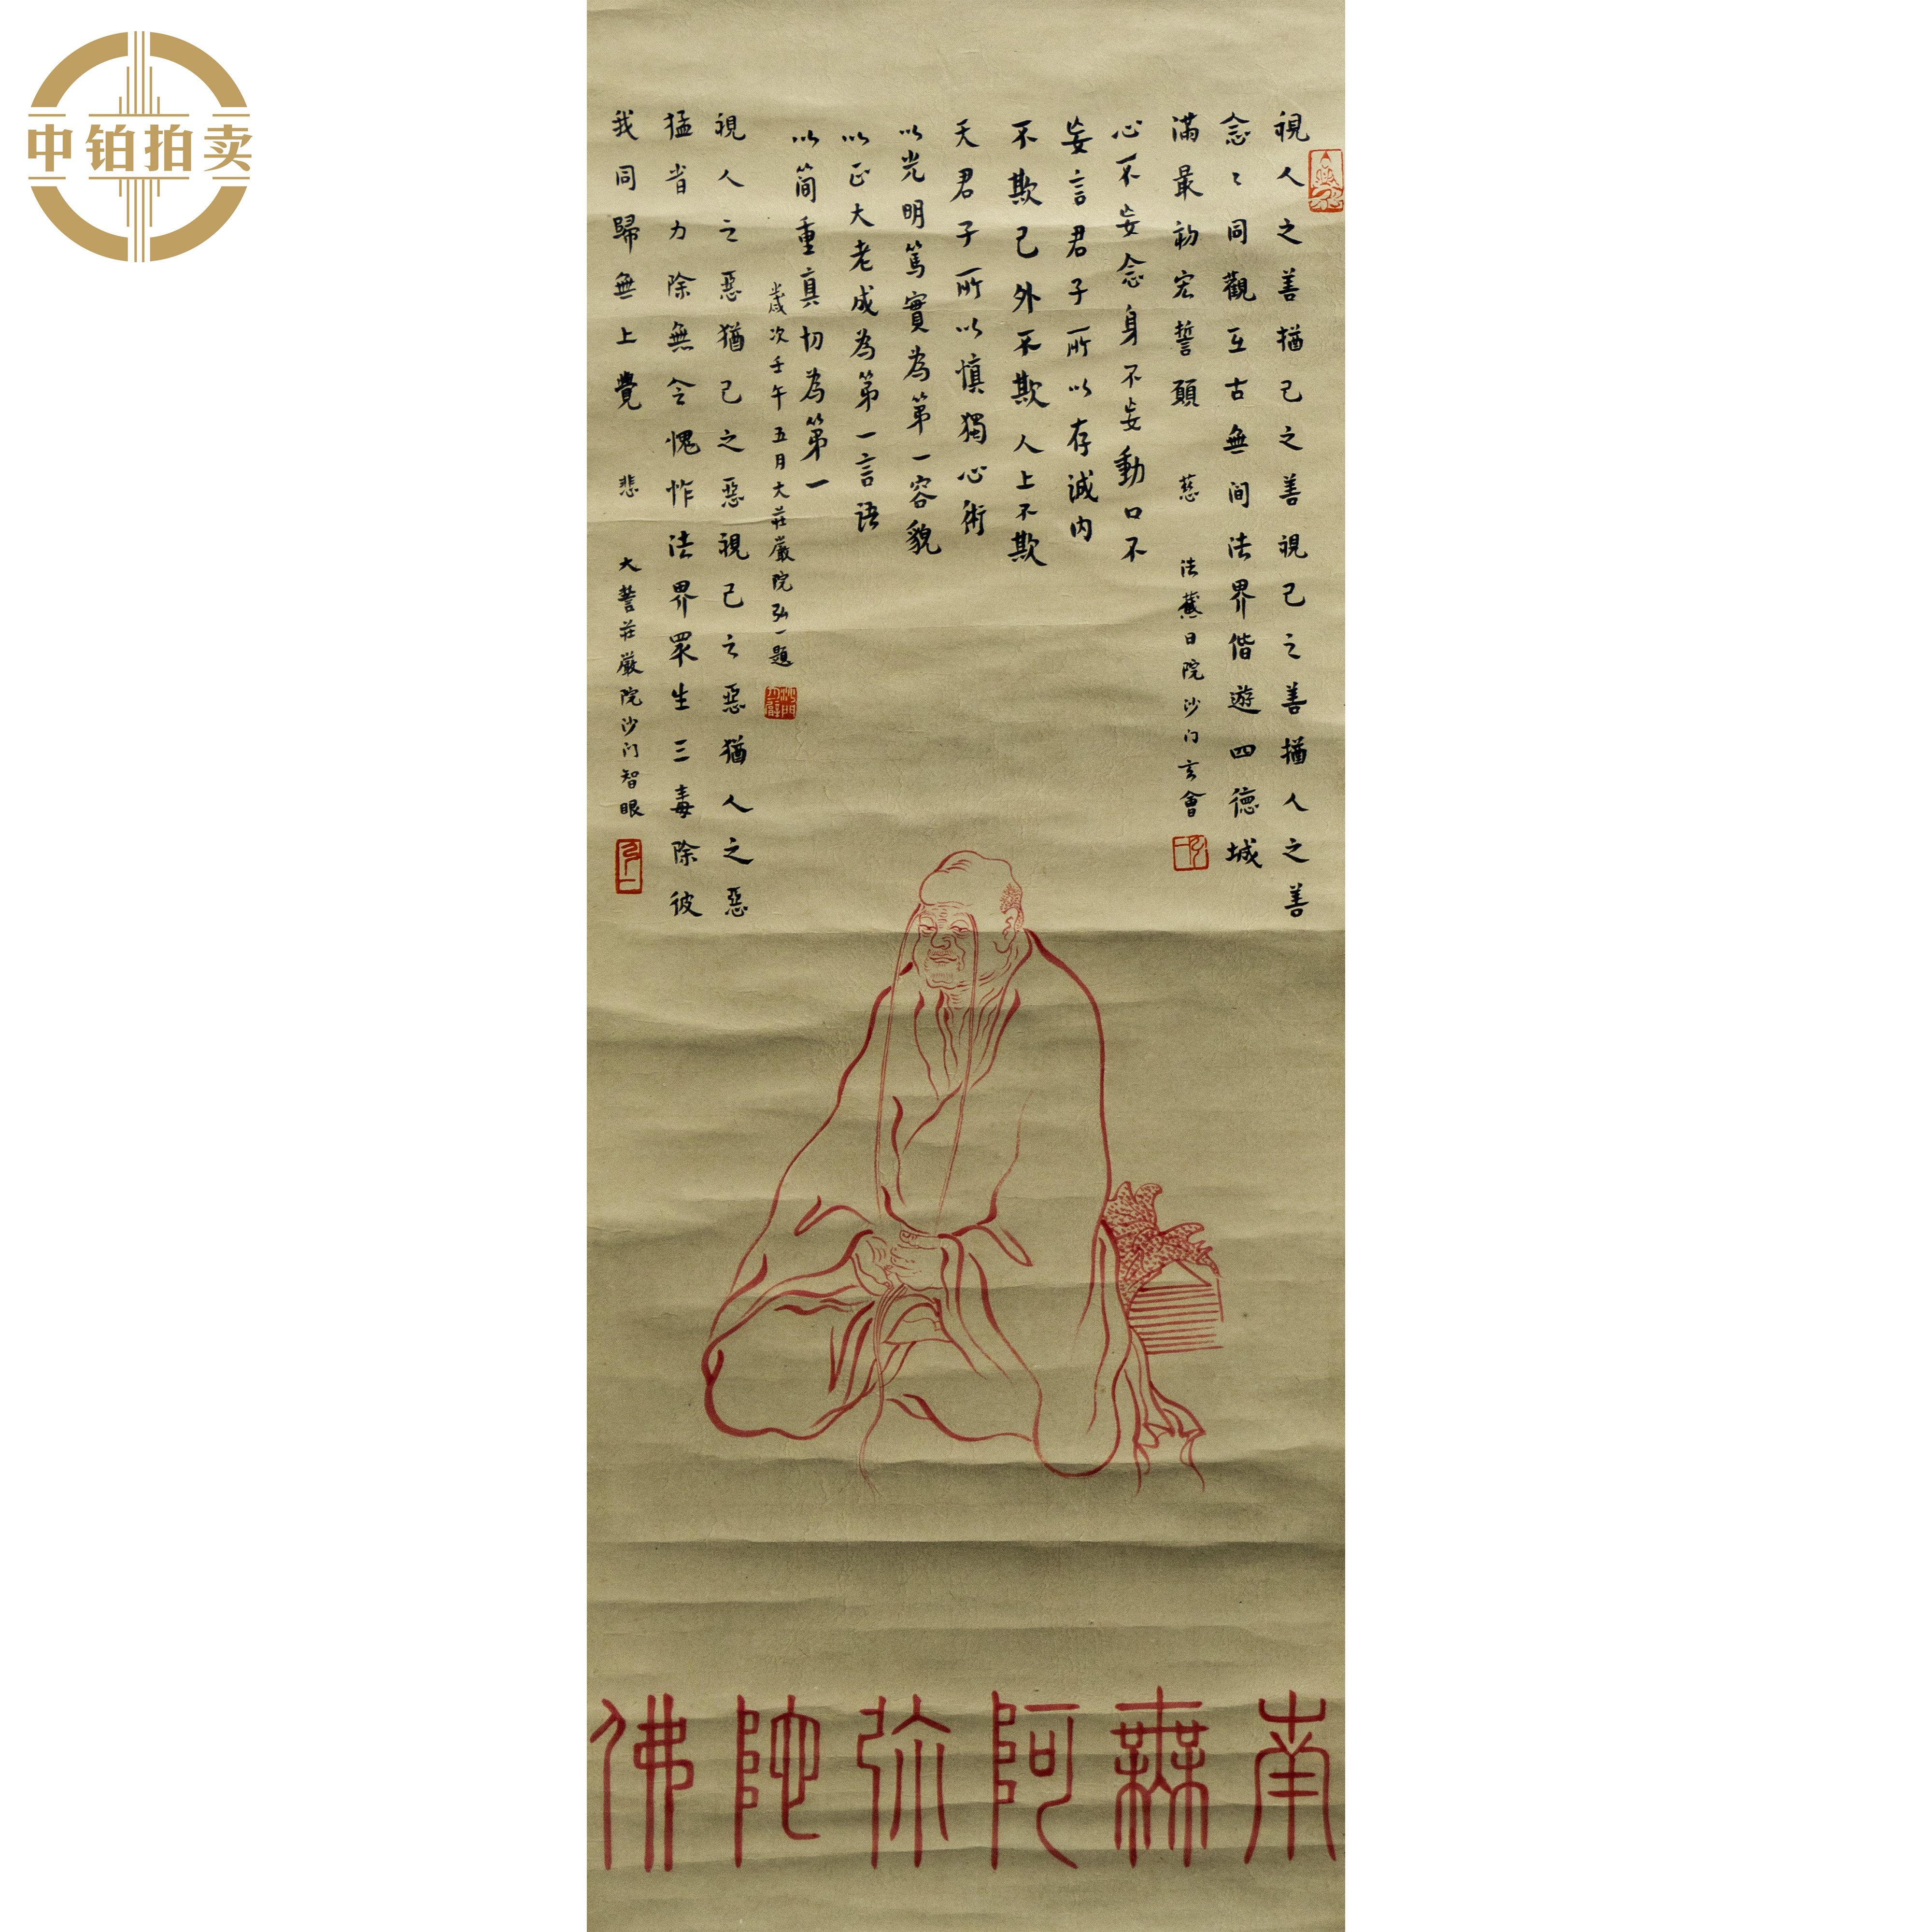 中铂拍卖
視人之善猶己之善視己之善猶人之善
念〻同觀互古無间法界偕遊四德城
滿最初宏誓願 慈 法藏日院沙门玄會
心不妄念身不妄動口不
妄言君子所以存誠内
不欺己外不欺人上不欺
天君子所以慎獨心術
以光明篤實為第一容貌
以正大老成為第一言语
以简重真切為第一
歲次壬午五月大莊嚴院弘一題
視人之惡猶己之惡視己之惡猶人之惡
猛省力除無令愧怍法界眾生三毒除彼
我同歸無上覺 悲 大誓莊嚴院沙门智眼
南無阿弥陀佛